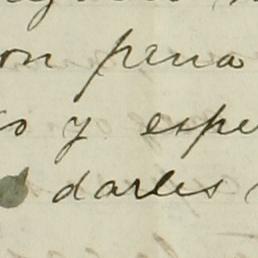 on pena
o y espe
darles